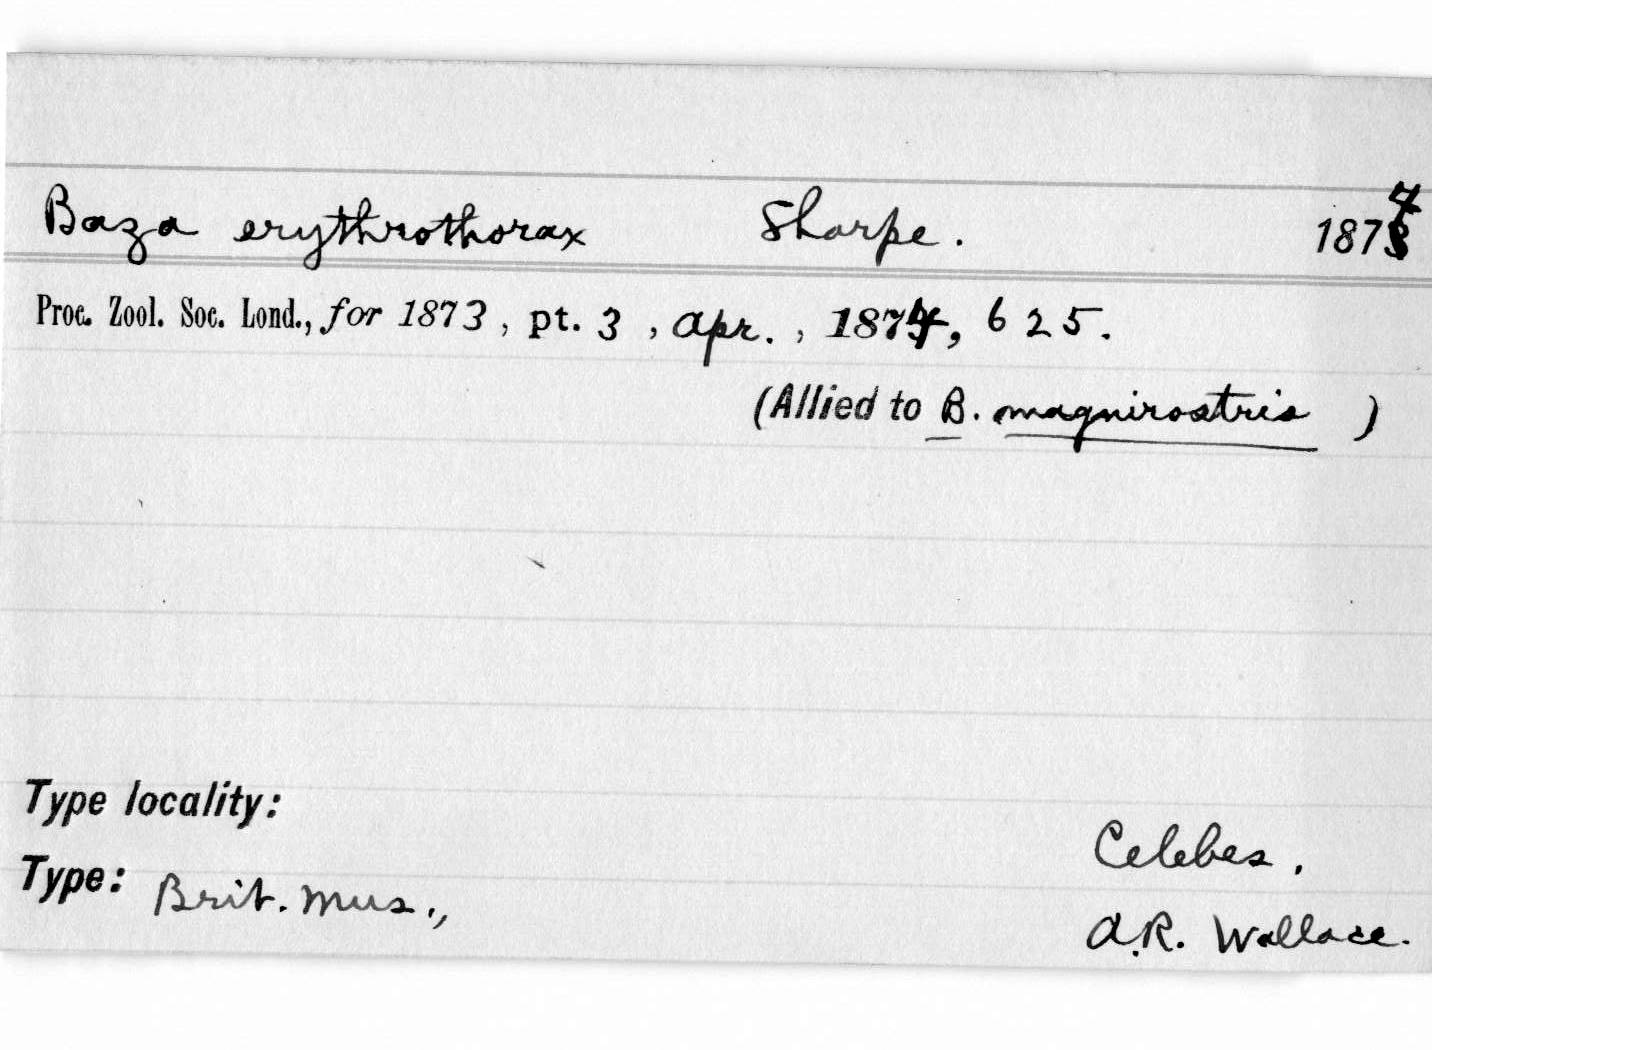 Baza erythrothorax Sharpe. 1874
Proc. Zool. Soc. Lond., for 1873, pt. 3, Apr., 1874, 625.
(Allied to B. magnirostris )
Type locality:
Celebes,
Type: Brit. Mus.,
A.R. Wallace.